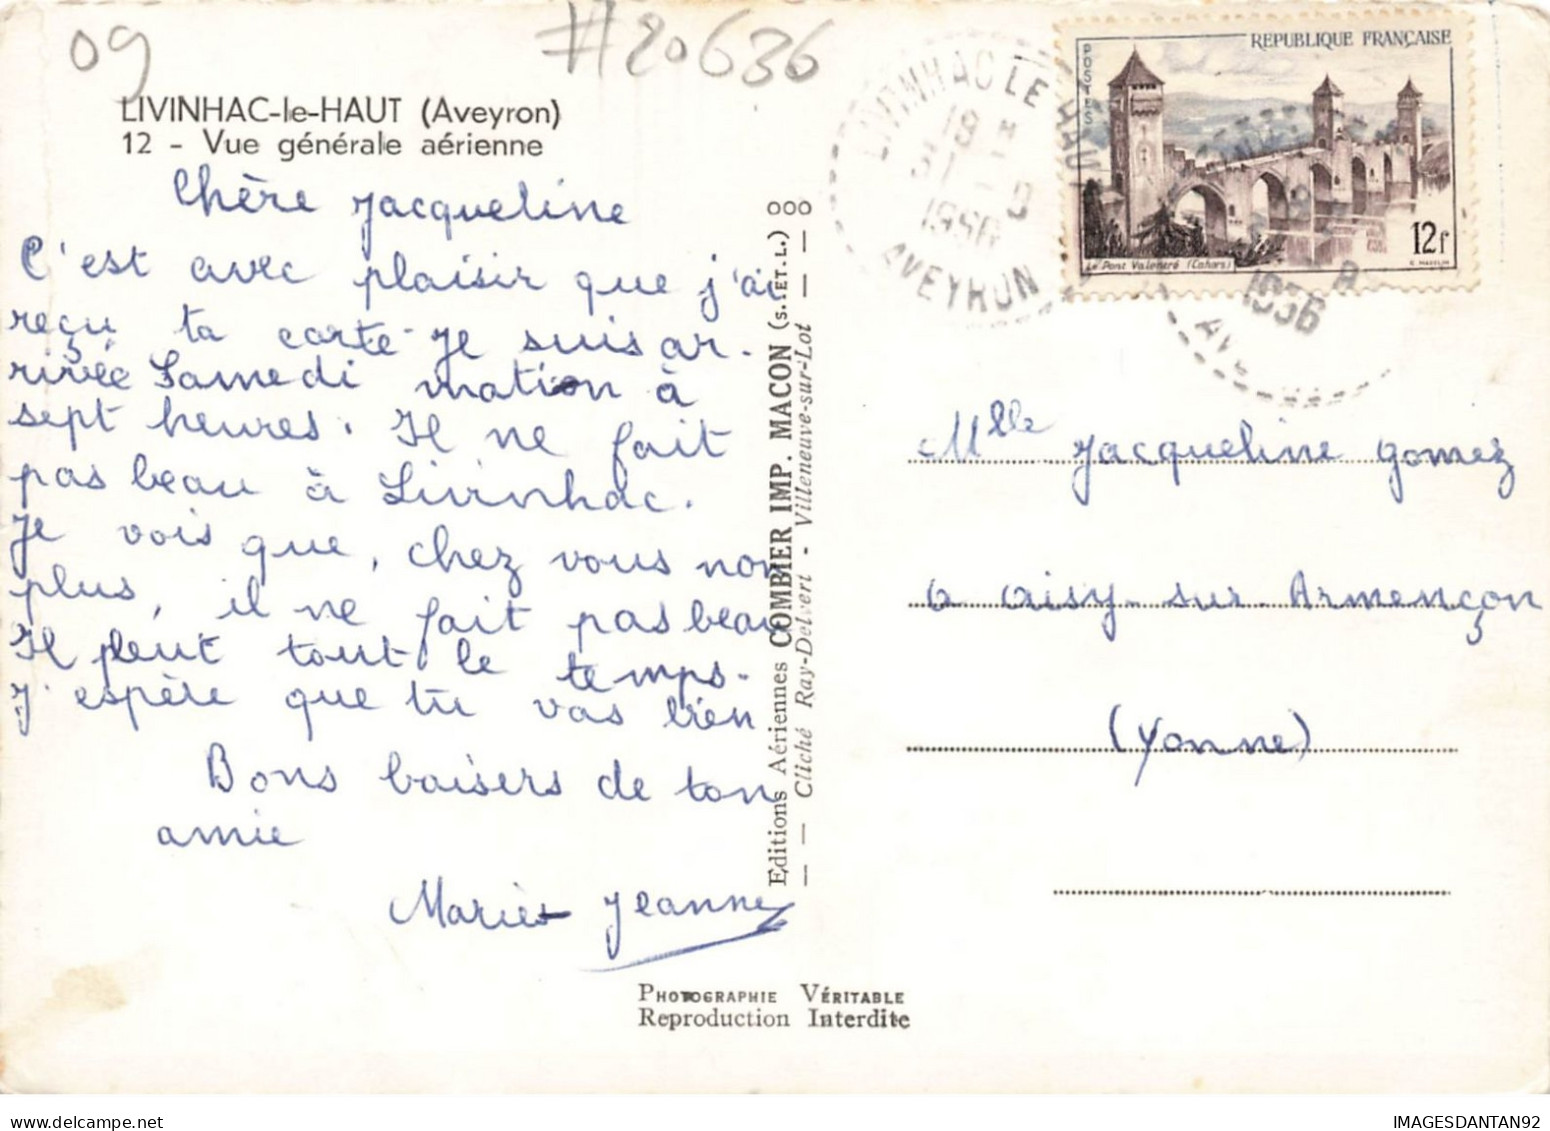 09
#20636
LIVINHAC-le-HAUT (Aveyron)
12 - Vue générale aérienne
Chère Jacqueline
C'est avec plaisir que j'ai
reçu ta carte. Je suis ar-
rivée Samedi matin à
sept heures. Il ne fait
pas beau à Livinhac.
Je vois que, chez vous non
plus, il ne fait pas beau
Il pleut tout le temps.
J'espère que tu vas bien
Bons baisers de ton
amie
Marie-Jeanne
Editions Aériennes COMBIER IMP. MACON (S.-ET-L.) OOO
— Cliché Ray-Delvert - Villeneuve-sur-Lot —
PHOTOGRAPHIE VÉRITABLE
Reproduction Interdite
LIVINHAC LE HAUT
19 H
31 - 8
1956
AVEYRON
REPUBLIQUE FRANÇAISE
POSTES
Le Pont Valentré (Cahors)
12f
8
1956
AVE
Mlle Jacqueline Gomez
à Aisy-sur-Armençon
(Yonne)
IMAGESDANTAN92